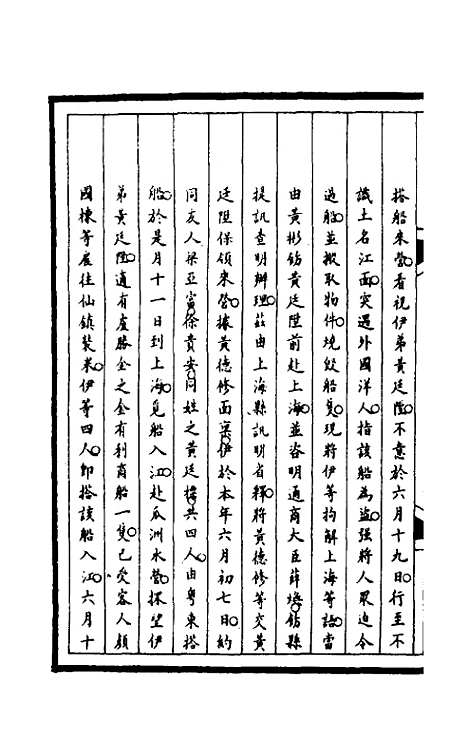 搭船来營看視伊弟黃廷陞不意於六月十九日行至不
識土名江面突遇外國洋人指該船為盜強將人眾迫令
過船並搬取物件燒毀船隻現將伊等拘解上海等語當
由黃彬飭黃廷陞前赴上海並咨明通商大臣薛煥飭縣
提訊查明辦理茲由上海縣訊明省釋將黃德修等交黃
廷陞保領來營據黃德修面稟伊於本年六月初七日約
同友人梁亞富徐貴安同姓之黃廷樑共四人由粵東搭
船於是月十一日到上海覓船入江赴瓜洲水營探望伊
弟黃廷陞適有盧勝全之金有利商船一隻已受客人顏
國棟等雇往仙鎮裝米伊等四人即搭該船入江六月十